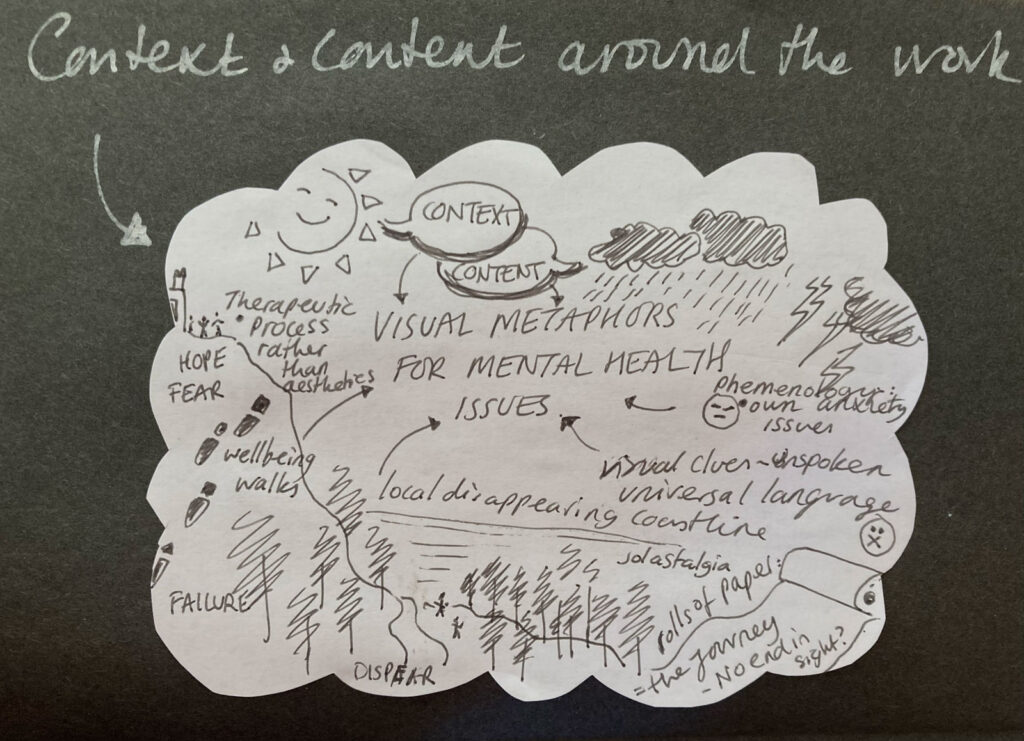 Context & Content around the work
CONTEXT
CONTENT
VISUAL METAPHORS
FOR MENTAL HEALTH
ISSUES
• Therapeutic
Process
rather
than
aesthetics
HOPE
FEAR
wellbeing
walks
FAILURE
DISPEAR
Phemenology:
• own anxiety
issues
visual clues - unspoken
universal language
local disappearing coastline
solastalgia
rolls of paper:
= the journey
- No end in
sight?